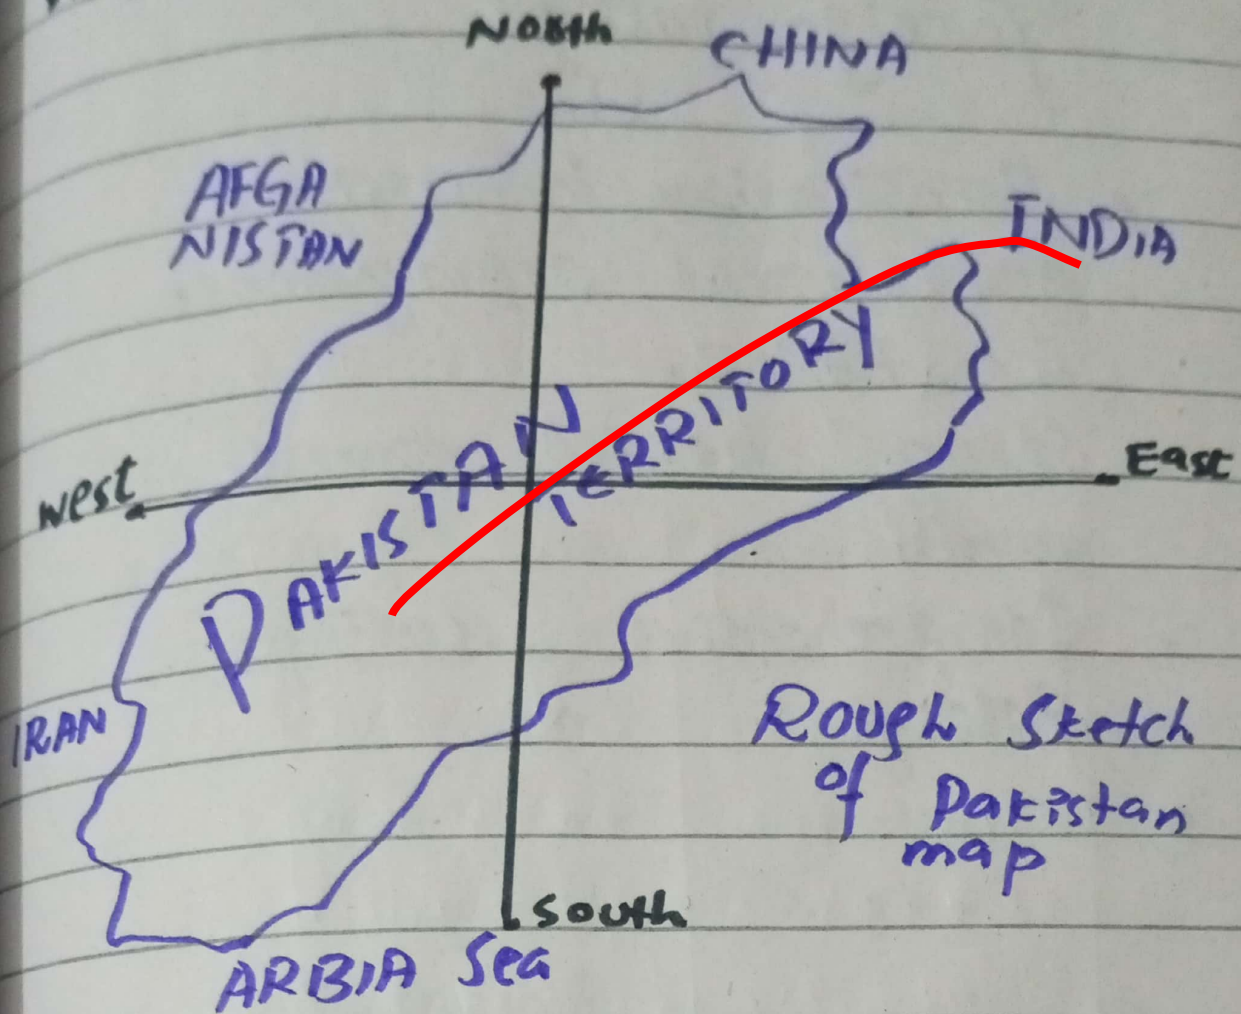 North
CHINA
AFGA
NISTAN
INDIA
West
East
PAKISTAN TERRITORY
IRAN
Rough Sketch
of Pakistan
map
South
ARBIA Sea